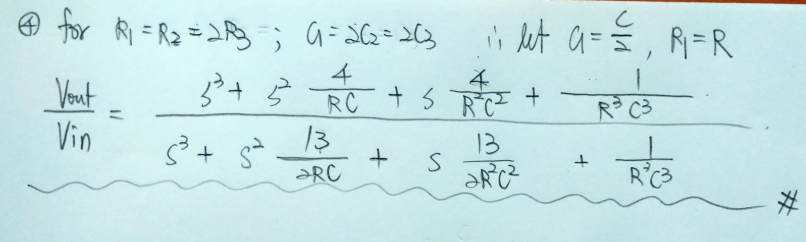 ④ for R₁ = R₂ = 2R₃ ; C₁ = 2C₂ = 2C₃ ∴ let C₁ = C/2 , R₁ = R
Vout/Vin = (s³ + s² 4/RC + s 4/R²C² + 1/R³C³) / (s³ + s² 13/2RC + s 13/2R²C² + 1/R³C³)
#